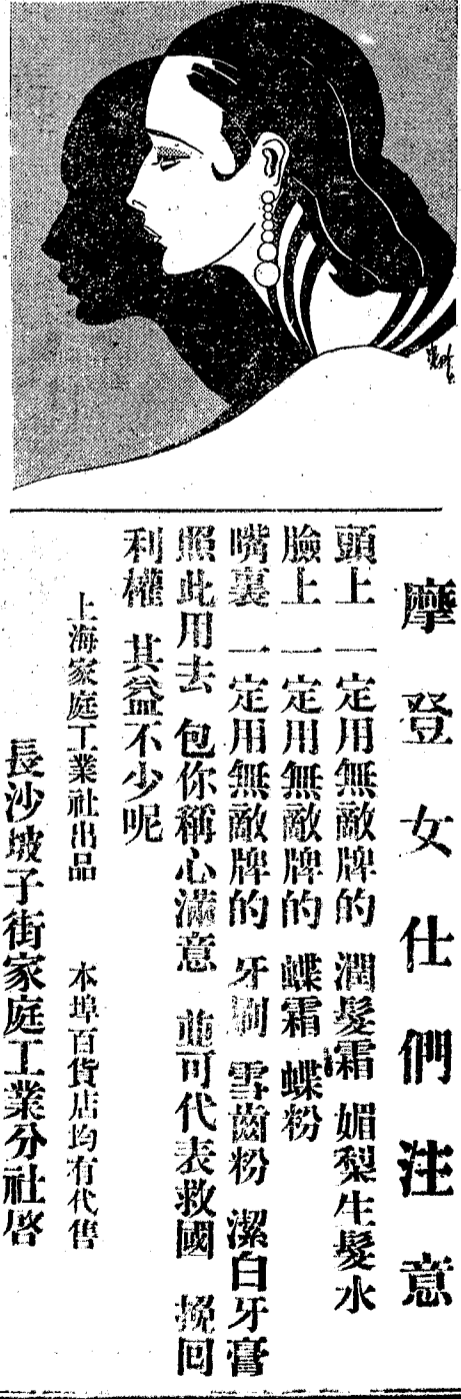 摩登女仕們注意
頭上　一定用無敵牌的　潤髮霜　媚梨生髮水
臉上　一定用無敵牌的　蝶霜　蝶粉
嘴裏　一定用無敵牌的　牙刷　雪齒粉　潔白牙膏
照此用去　包你稱心滿意　並可代表救國　挽回
利權　其益不少呢
上海家庭工業社出品　本埠百貨店均有代售
長沙坡子街家庭工業分社啓